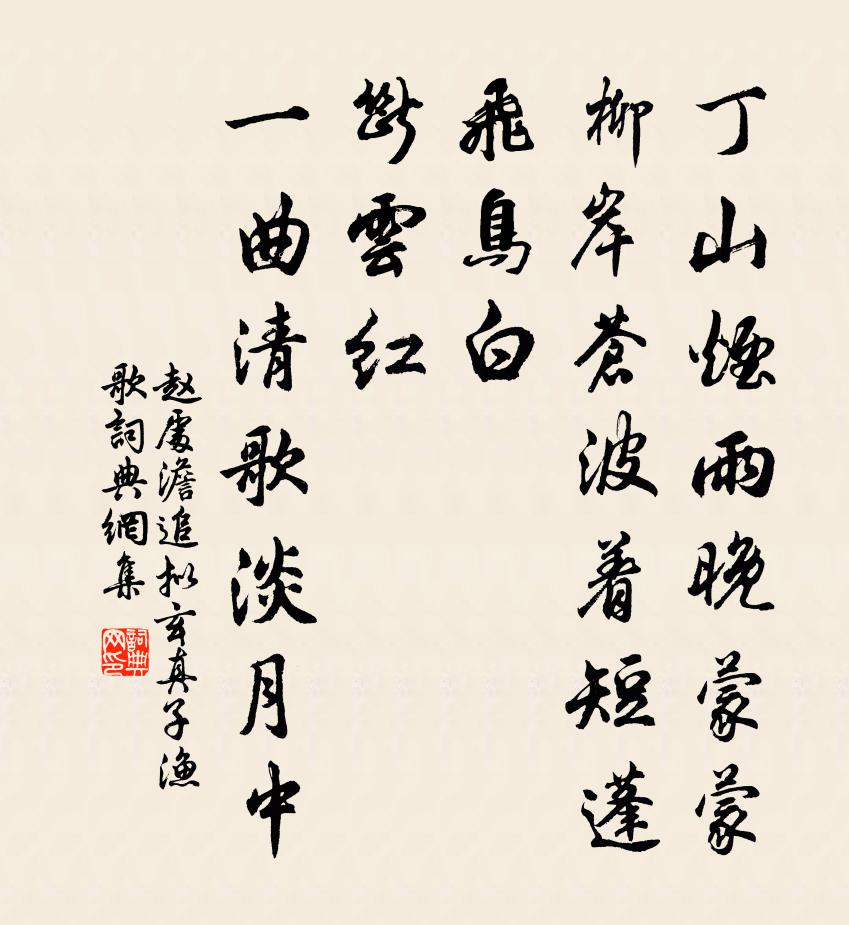 丁山煙雨晚蒙蒙
柳岸蒼波着短蓬
飛鳥白
斷雲紅
一曲清歌淡月中
赵處澹追拟玄真子渔
歌詞典網集
詞典网印